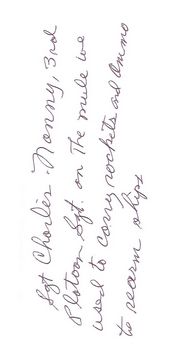 Sgt Charles Nanny, 3rd
Platoon Sgt. on The mule we
used to carry rockets and Ammo
to rearm ships